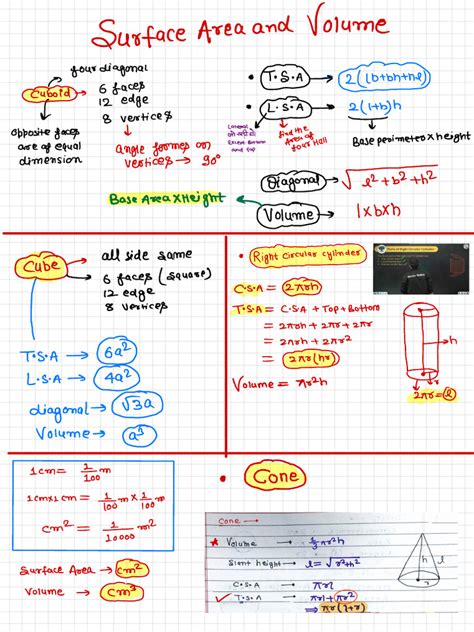 Surface Area and Volume
four diagonal
Cuboid
6 faces
12 edge
8 vertices
opposite faces
are of equal
dimension
angle formes on
vertices → 90°
• T.S.A → 2(lb+bh+hl)
• L.S.A → 2(l+b)h
Except Bottom
and top
find the
Area of
four Wall
Base perimeter x height
Diagonal → √l²+b²+h²
Base Area x Height
Volume → l x b x h
Cube
all side same
6 faces (square)
12 edge
8 vertices
T.S.A → 6a²
L.S.A → 4a²
diagonal → √3a
Volume → a³
• Right Circular cylinder
C.S.A = 2πrh
T.S.A = C.S.A + Top + Bottom
= 2πrh + 2πr + 2πr
= 2πrh + 2πr²
= 2πr(hr)
Volume = πr²h
h
r
2πr = l
1cm = 1/100 m
1cm x 1cm = 1/100 m x 1/100 m
cm² = 1/10000 m²
Surface Area → cm²
Volume → cm³
• Cone
Cone →
★ Volume → 1/3 πr²h
Slant height → l = √r²+h²
C.S.A → πrl
✓ T.S.A → πrl + πr²
⇒ πr(l+r)
h
l
r